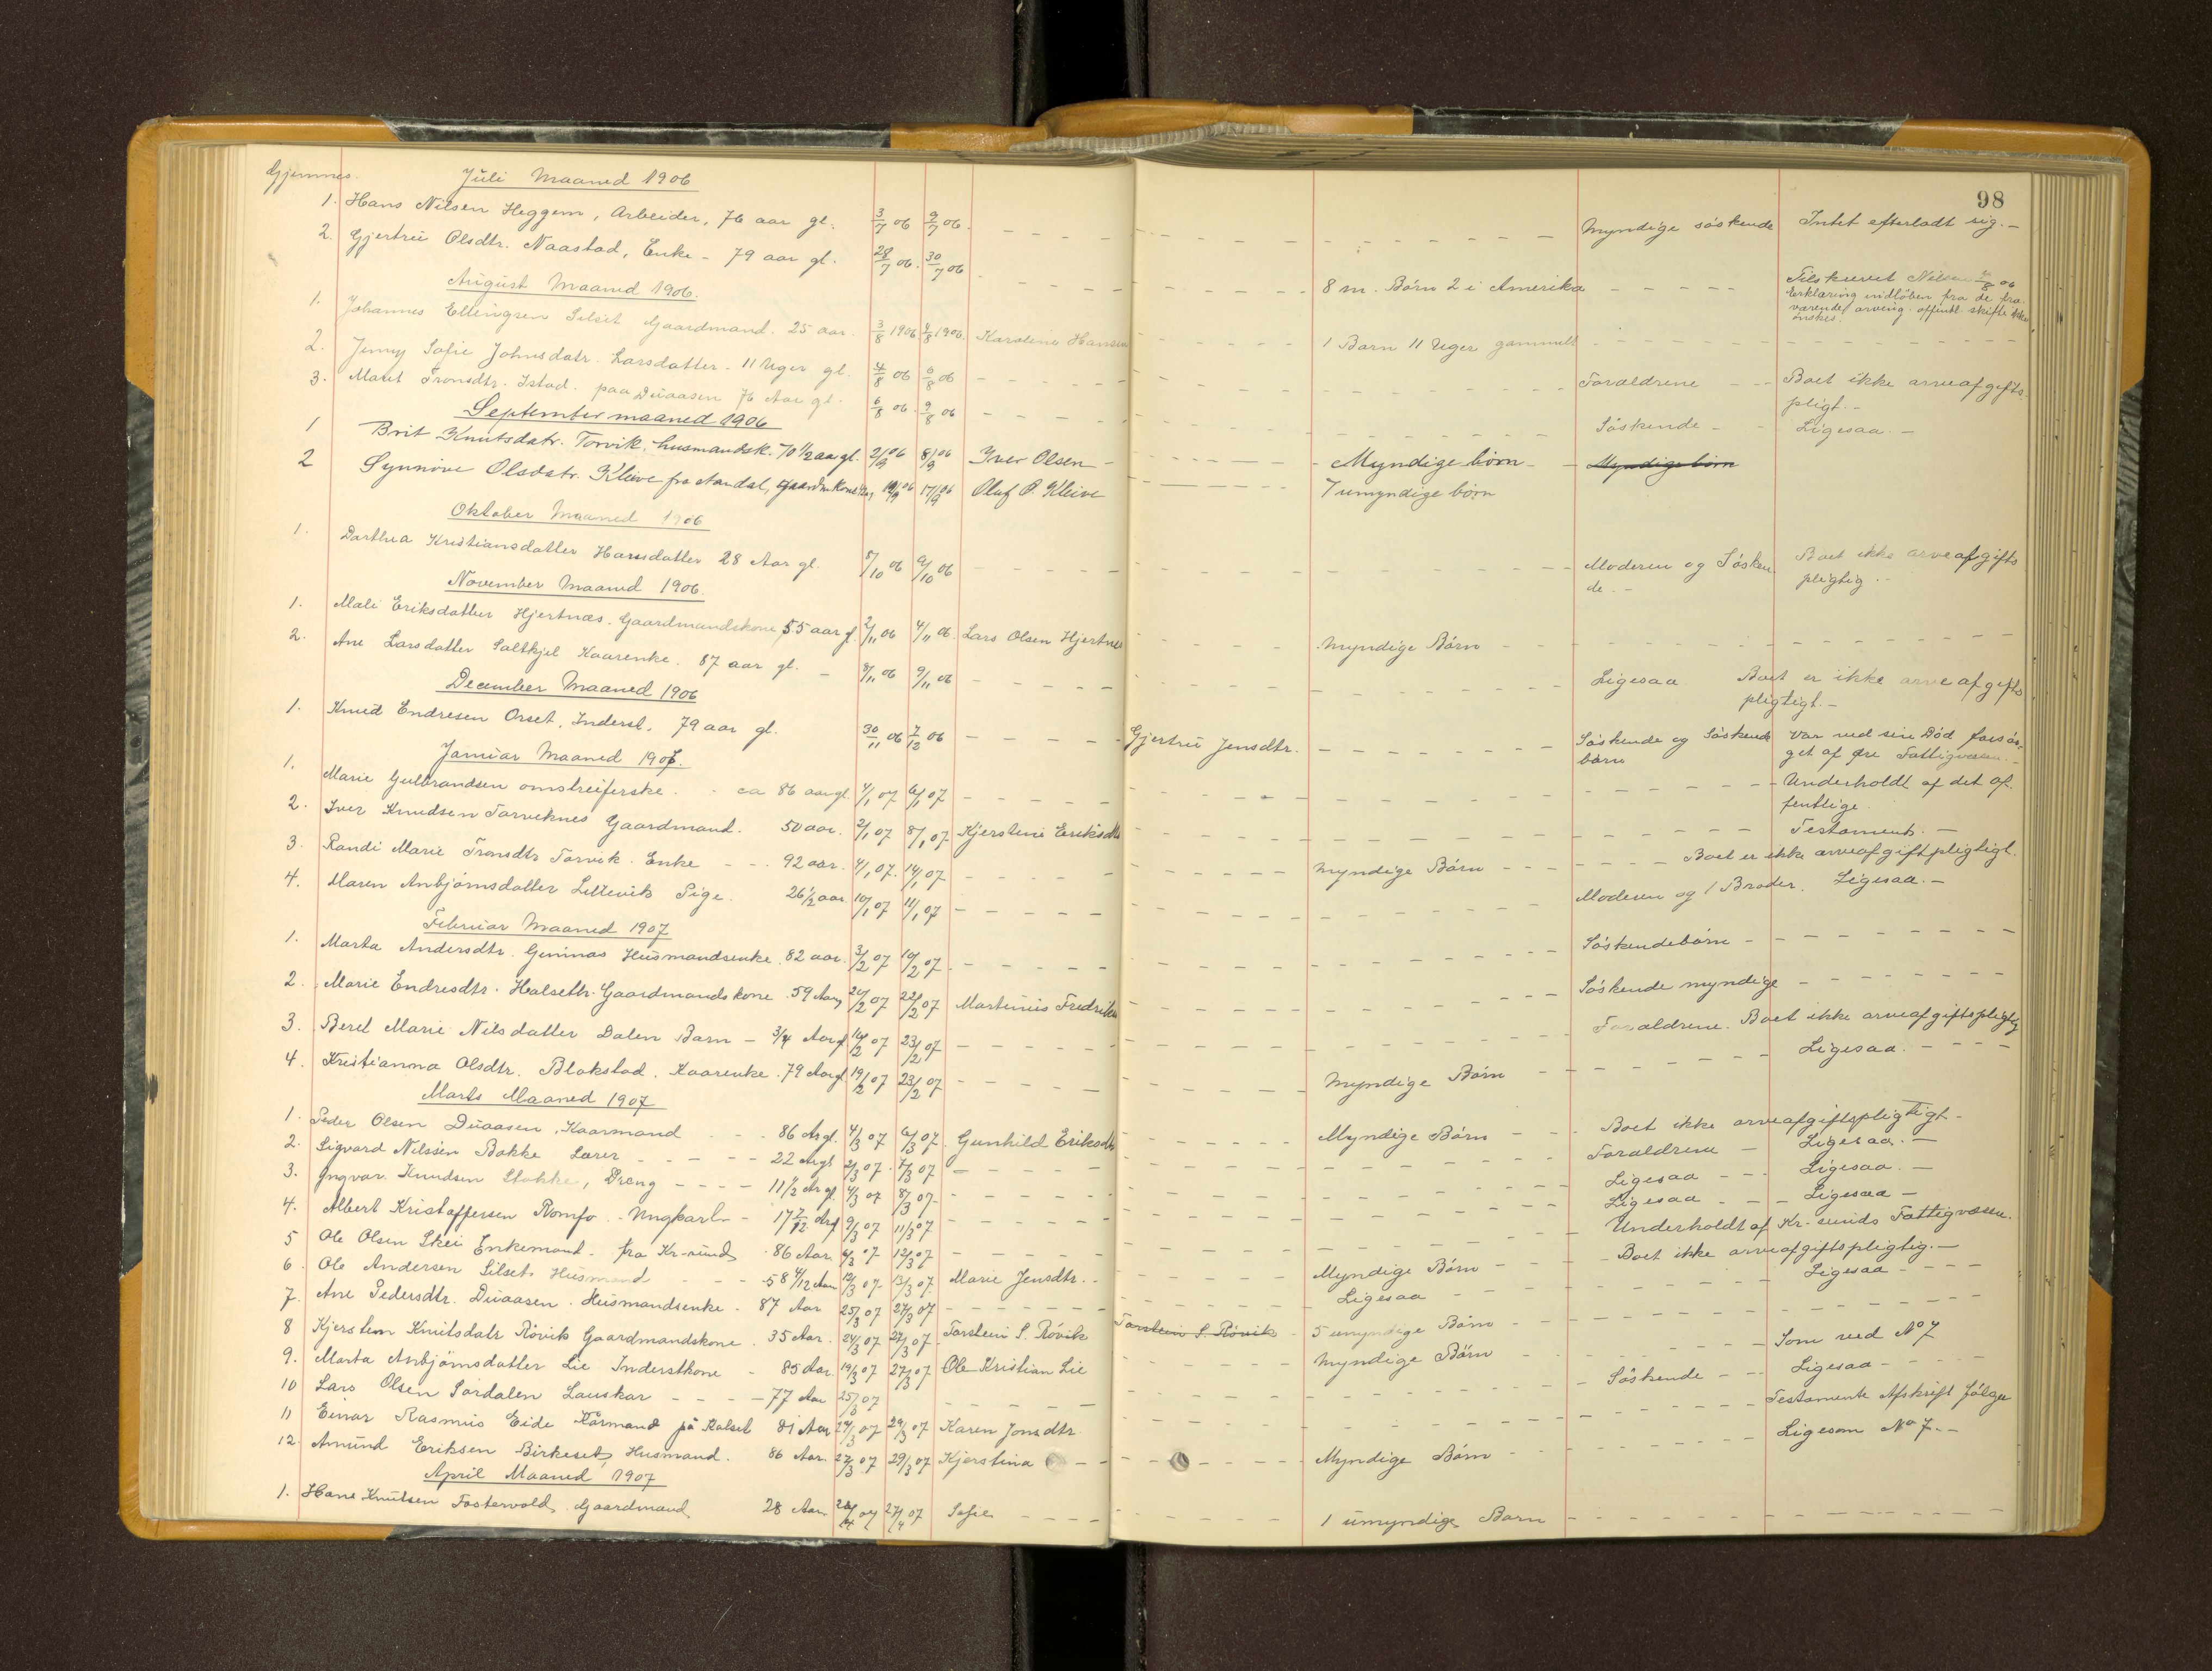 98
Gjemnes. Juli Maaned 1906
1. Hans Nilsen Heggem, Arbeider, 76 aar gl. 3/7 06 9/7 06. Myndige söskende Intet efterladt sig. -
2. Gjertrü Olsdtr. Naastad, Enke - 79 aar gl. 28/7 06. 30/7 06 8 m. Börn 2 i Amerika Tilskrevet Nilsen 06
Erklæring indlöben fra de fra-
værende arving. offentl. skifte ikke
önskes.
August Maaned 1906.
1. Johannes Ellingsen Silset Gaardmand. 25 aar. 3/8 1906 1906. Karoline Hansen 1 Barn 11 Uger gammelt
2. Jenny Sofie Johnsdatr. Larsdatter - 11 Uger gl. 4/8 06 6/8 06 Forældrene Boet ikke arveafgifts
pligt. -
3. Marit Tronsdtr. Istad. paa Düaasen 76 Aar gl. 6/8 06. 9/8 06 Söskende - Ligesaa. -
September maaned 1906
1 Brit Knutsdatr. Torvik, husmandsk. 70 1/2 aa gl. 2/9 06 8/9 06 Iver Olsen - Myndige börn - Myndige börn
2 Synnöve Olsdatr. Kleive fra Aandal, Gaardm.kone 06 17/9 06 Oluf O. Kleive 7 umyndige börn
Oktober Maaned 1906
1. Dorthea Kristiansdatter Harsdatter 28 Aar gl. 8/10 06 9/10 06 Moderen og Sösken
de. - Boet ikke arveafgifts
pligtig. -
November Maaned 1906.
1. Mali Eriksdatter Hjertnæs. Gaardmandskone, 55 aar gl. 2/11 06 4/11 06. Lars Olsen Hjertnes Myndige Börn
2. Ane Larsdatter Saltkjel Kaarenke. 87 aar gl. - 8/11 06 9/11 06 Ligesaa Boet er ikke arveafgifts
pligtigt. -
December Maaned 1906
1. Knud Endresen Orset, Inderst, 79 aar gl. 30/11 06 7/12 06 Gjertrü Jensdtr. Söskende og Söskende
börn Var ved sin Död forsör-
get af Öre Fattigvæsen. -
Januar Maaned 1907.
1. Marie Gulbrandsen omstreiferske. - ca 86 aar gl. 4/1 07 6/1 07 Underholdt af det of-
fentlige.
2. Iver Knudsen Torviknes Gaardmand. 50 aar. 2/1 07 8/1 07 Kjerstine Eriksdtr Testament. -
3. Randi Marie Tronsdtr Torvik. Enke - - - 92 aar. 4/1 07. 14/1 07 Myndige Börn - - - Boet er ikke arveafgiftpligtigt.
4. Maren Anbjörnsdatter Lillevik Pige. 26 1/2 aar 10/1 07 11/1 07 Moderen og 1 Broder. Ligesaa. -
Februar Maaned 1907
1. Marta Andersdtr. Gimnas Husmandsenke. 82 aar. 3/2 07 10/2 07. Söskendebörn -
2. Marie Endresdtr. Halseth. Gaardmandskone. 59 Aar 20/2 07 22/2 07 Martinus Fredriks Söskende myndige
3. Beret Marie Nilsdatter Dalen Barn - 3/4 Aar gl 07 23/2 07 Forældrene. Boet ikke arveafgiftspligtig
4. Kristianna Olsdtr. Blakstad. Kaarenke. 79 Aar gl 19/2 07 23/2 07 Myndige Börn - Ligesaa.
Marts Maaned 1907
1. Peder Olsen Düaasen, Kaarmand - - - 86 Ar gl. 4/3 07 6/3 07. Gunhild Eriksdtr Myndige Börn - Boet ikke arveafgiftspligtigt -
2. Sigvard Nilssen Bakke Lærer - - - - 22 Ar gl 2/3 07. 7/3 07 Forældrene - Ligesaa. -
3. Ingvar Knudsen Stokke, Dreng - - - - 11 1/2 Ar gl. 4/3 07 8/3 07. Ligesaa - - Ligesaa. -
4. Albert Kristoffersen Romfo. - Ungkarl - - 17 7/12 Ar gl 9/3 07 11/3 07 Ligesaa - - Ligesaa -
5 Ole Olsen Skei Enkemand - fra Kr-sund. 86 Aar 6/3 07 12/3 07 Underholdt af Kr. sunds Fattigvæsen.
6. Ole Andersen Silset. Husmand - - - 58 4/12 Aar 07 13/3 07. Marie Jensdtr. - Myndige Börn - Boet ikke arveafgiftspligtig. -
7. Ane Pedersdtr. Düaasen. Husmandsenke. 87 Aar 25/3 07 27/3 07 Ligesaa - Ligesaa -
8 Kjersten Knutsdatr Rövik Gaardmandskone. 35 Aar. 24/3 07 27/3 07. Torstein S. Rövik Torstein S. Rövik 5 umyndige Börn
9. Marta Anbjörnsdatter Lie Inderstkone - 85 Aar. 19/3 07 27/3 07 Ole Kristian Lie Myndige Börn Som ved No 7
10 Lars Olsen Sördalen Lauskar - - - - 77 Aar 25/3 07 Söskende - - Ligesaa -
11 Einar Rasmus Eide Kårmand på Kalset 81 Aar 07 29/3 07 Karen Jonsdtr. Testamente Afskrift fölger
12. Amund Eriksen Birkeset, Husmand. 86 Aar. 27/3 07 29/3 07 Kjerstina Myndige Börn Ligesom No 7. -
April Maaned 1907
1. Hans Knutsen Fostervold. Gaardmand 28 Aar 07 27/4 07 Sofie 1 umyndige Barn